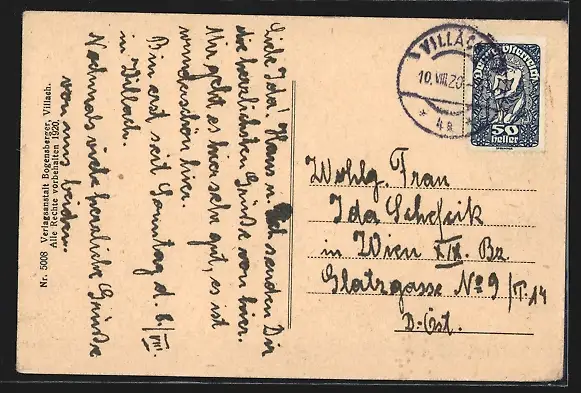 Liebe Ida! Hans u. ich senden Dir
die herzlichsten Grüße von hier.
Mir geht es hier sehr gut, es ist
wunderschön hier.
Bin erst seit Sonntag d. 8/VIII.
in Villach.
Nochmals viele herzliche Grüße
von uns beiden.
Nr. 5008 Verlagsanstalt Bogensberger, Villach.
Alle Rechte vorbehalten 1920.
VILLACH
10.VIII.20
* 4a *
Deutschösterreich
50
heller
Wohlg. Frau
Ida
in Wien XIX. Bz.
Glatzgasse No 9/T.14
D.-Öst.